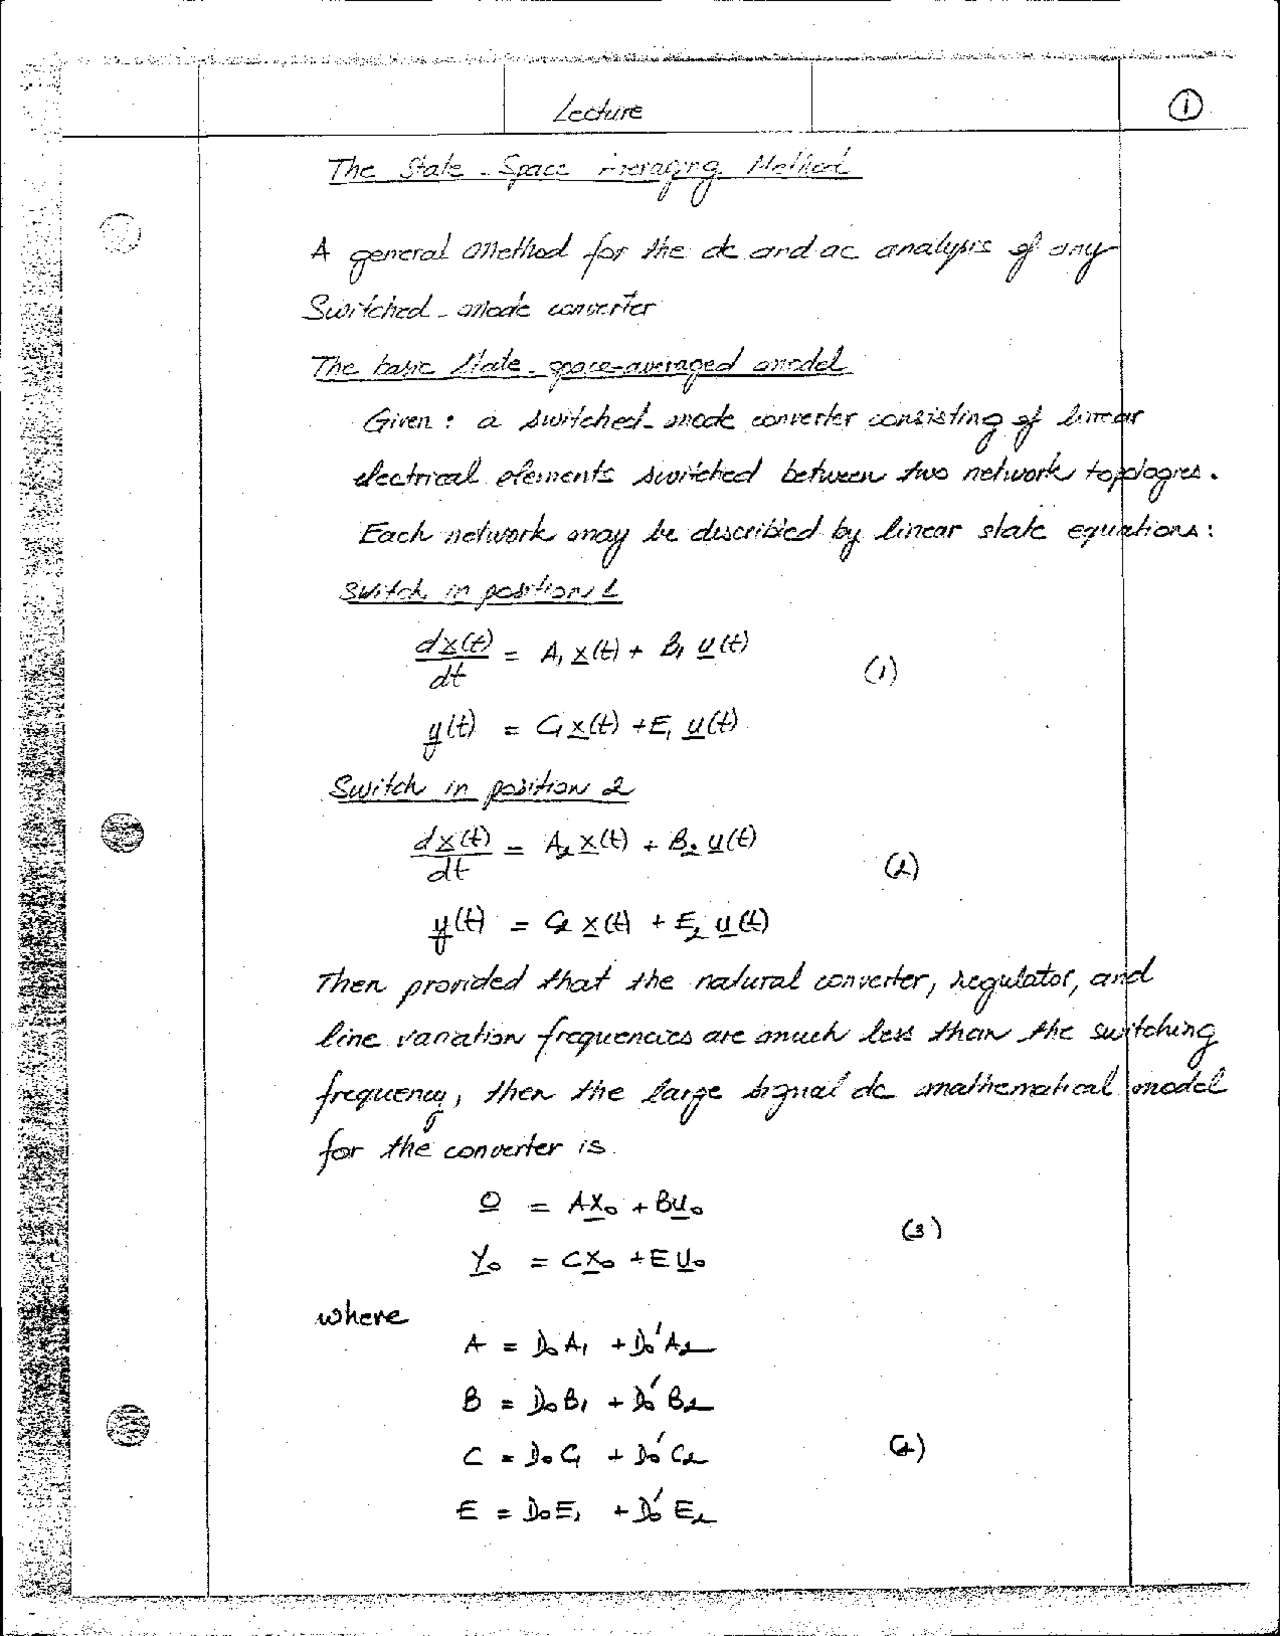 Lecture
①
The State-Space Averaging Method
A general method for the dc and ac analysis of any
Switched-mode converter
The basic state-space-averaged model
Given: a switched-mode converter consisting of linear
electrical elements switched between two network topologies.
Each network may be described by linear state equations:
Switch in position 1
dx(t)/dt = A₁ x(t) + B₁ u(t)
(1)
y(t) = C₁ x(t) + E₁ u(t)
Switch in position 2
dx(t)/dt = A₂ x(t) + B₂ u(t)
(2)
y(t) = C₂ x(t) + E₂ u(t)
Then provided that the natural converter, regulator, and
line variation frequencies are much less than the switching
frequency, then the large signal dc mathematical model
for the converter is
0 = AX₀ + BU₀
(3)
Y₀ = CX₀ + EU₀
where
A = D₀A₁ + D₀'A₂
B = D₀B₁ + D₀'B₂
C = D₀C₁ + D₀'C₂
(4)
E = D₀E₁ + D₀'E₂